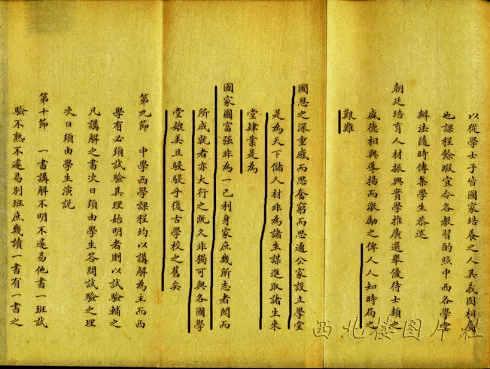 以從學士子皆國家培養之人其義固相屬
也課程餘暇宜令各教習酌照中西各學堂
辦法隨時傳集學生恭述
朝廷培育人材振興實學推廣選舉優待士類之
盛德相與導揚而激勵之俾人人知時局之
艱難
國恩之深重感而思奮窮而思通公家設立學堂
是為天下儲人材非為諸生謀進取諸生來
堂肄業是為
國家圖富強非為一己利身家庶幾所志者闊而
所成就者亦大行之既久非獨可與各國學
堂媲美且駸駸乎復古學校之舊矣
第九節 中學西學課程均以講解為主而西
學有必須試驗其理始明者則以試驗輔之
凡講解之書次日須由學生答問試驗之理
次日須由學生演說
第十節 一書講解不明不遽易他書一班試
驗不熟不遽易別班庶幾讀一書有一書之
西北樓图片社